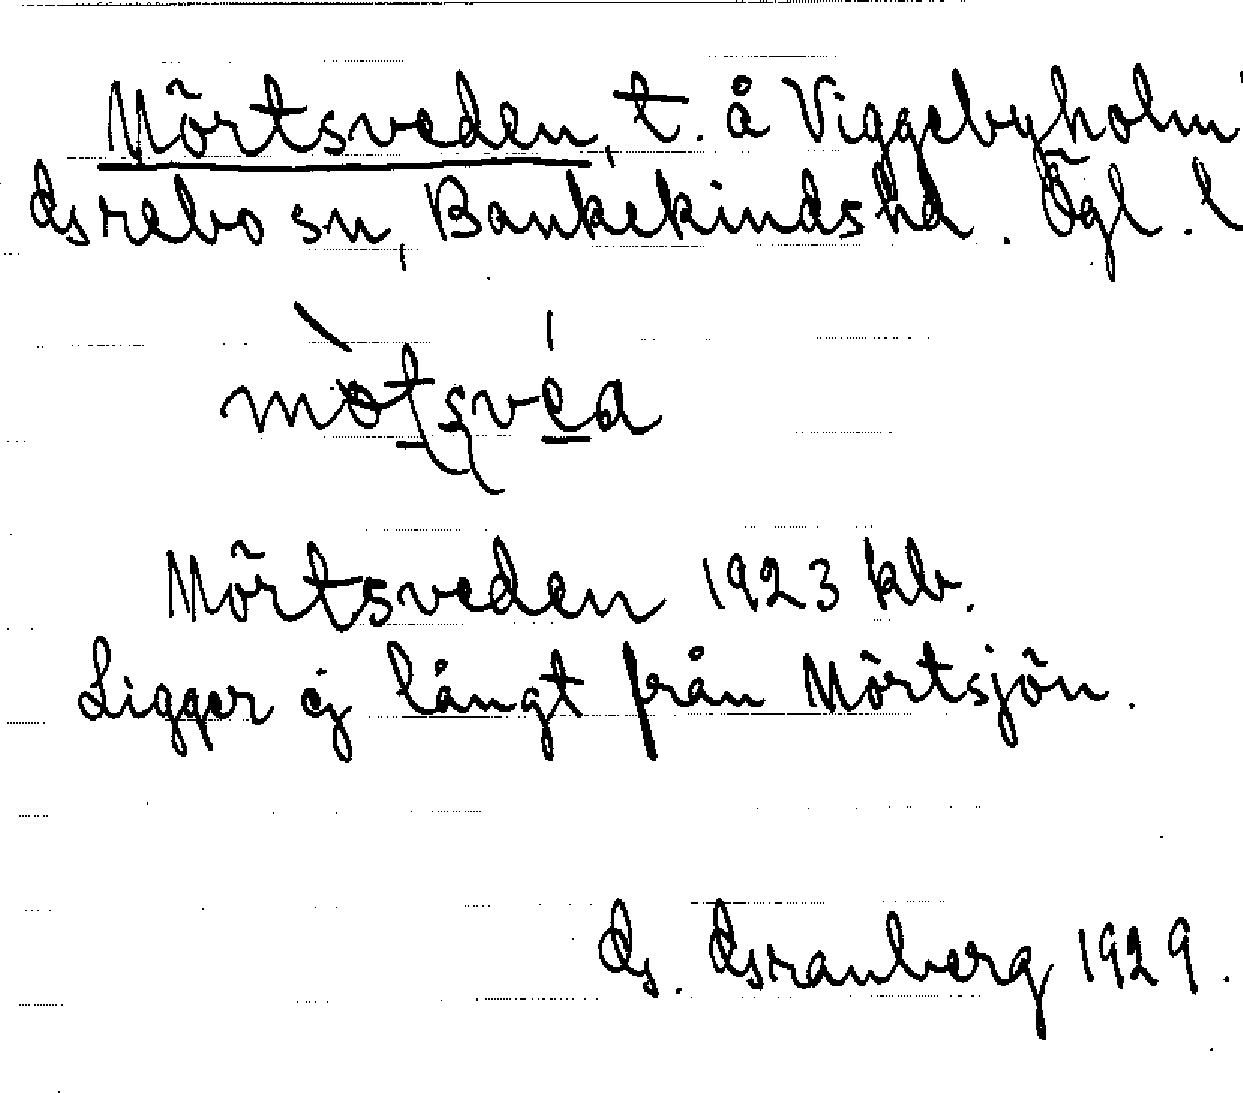 Mörtsveden, t. å Viggebyholm
Grebo sn, Bankekindshd. Ögl. l
Mörtsveden 1923 kb.
Ligger ej långt från Mörtsjön.
G. Granberg 1929.